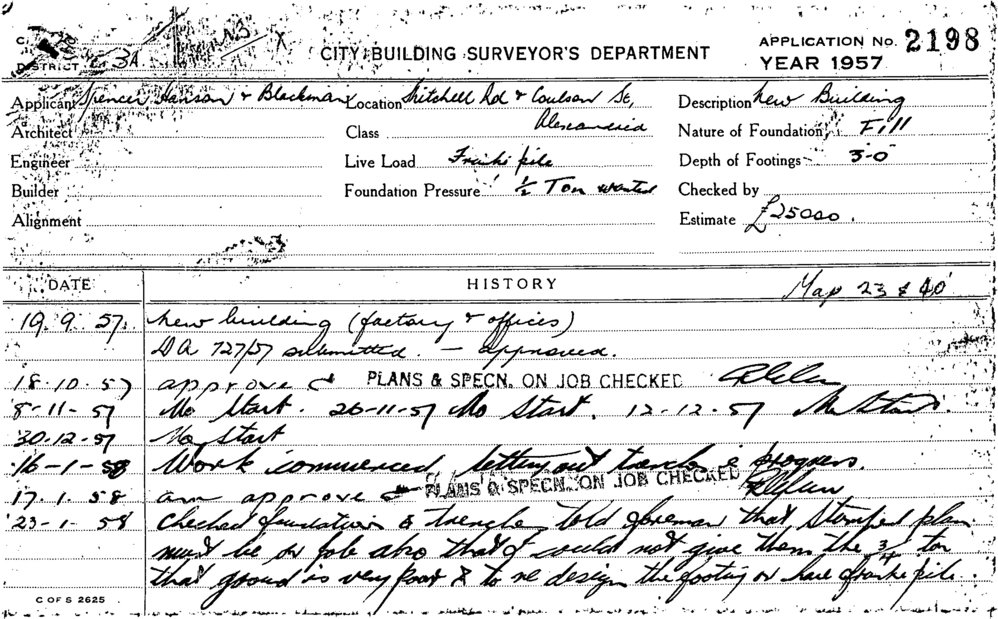 CITY BUILDING SURVEYOR'S DEPARTMENT
APPLICATION No. 2198
YEAR 1957
DISTRICT 3A
Applicant Spencer Hanson & Blackman Location Mitchell Rd & Coulson St, Description New Building
Architect Class Alexandria Nature of Foundation Fill
Engineer Live Load Franki pile Depth of Footings 3-0
Builder Foundation Pressure ½ Ton wanted Checked by
Alignment Estimate £25000.
DATE HISTORY Map 23 & 40
19.9.57. New building (factory & offices)
DA 727/57 submitted. - approved.
18.10.57 approve PLANS & SPECN. ON JOB CHECKED
8-11-57 No Start. 26-11-57 No Start. 12-12-57 No Start.
30-12-57 No Start
16-1-58 Work commenced setting out progress.
17.1.58 am approve PLANS & SPECN. ON JOB CHECKED
23-1-58 Checked foundations & told foreman that, Stamped plan
must be on job also that I could not give them the ¾ ton
that ground is very poor & to re design the footing or have franki pile.
C OF S 2625